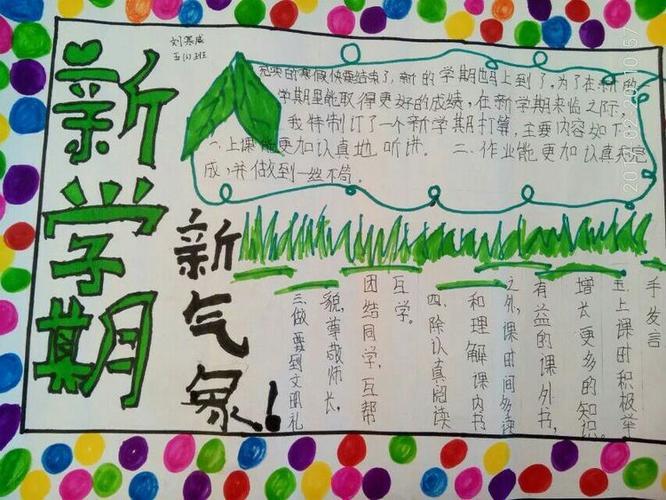 新学期
新气象！
班
的寒假快要结束了，新的学期也马上到了，为了在新的
学期里能取得更好的成绩，在新学期来临之际，
我特制订了一个新学期打算，主要内容如下
一、上课能更加认真地听讲。二、作业能更加认真完
成，并做到一丝不苟。
三、做要到文明礼
貌，尊敬师长，
团结同学，互帮
互学。
四、除认真阅读
和理解课内书
之外，课时间多读
有益的课外书，
增长更多的知识。
五上课时积极举
手发言